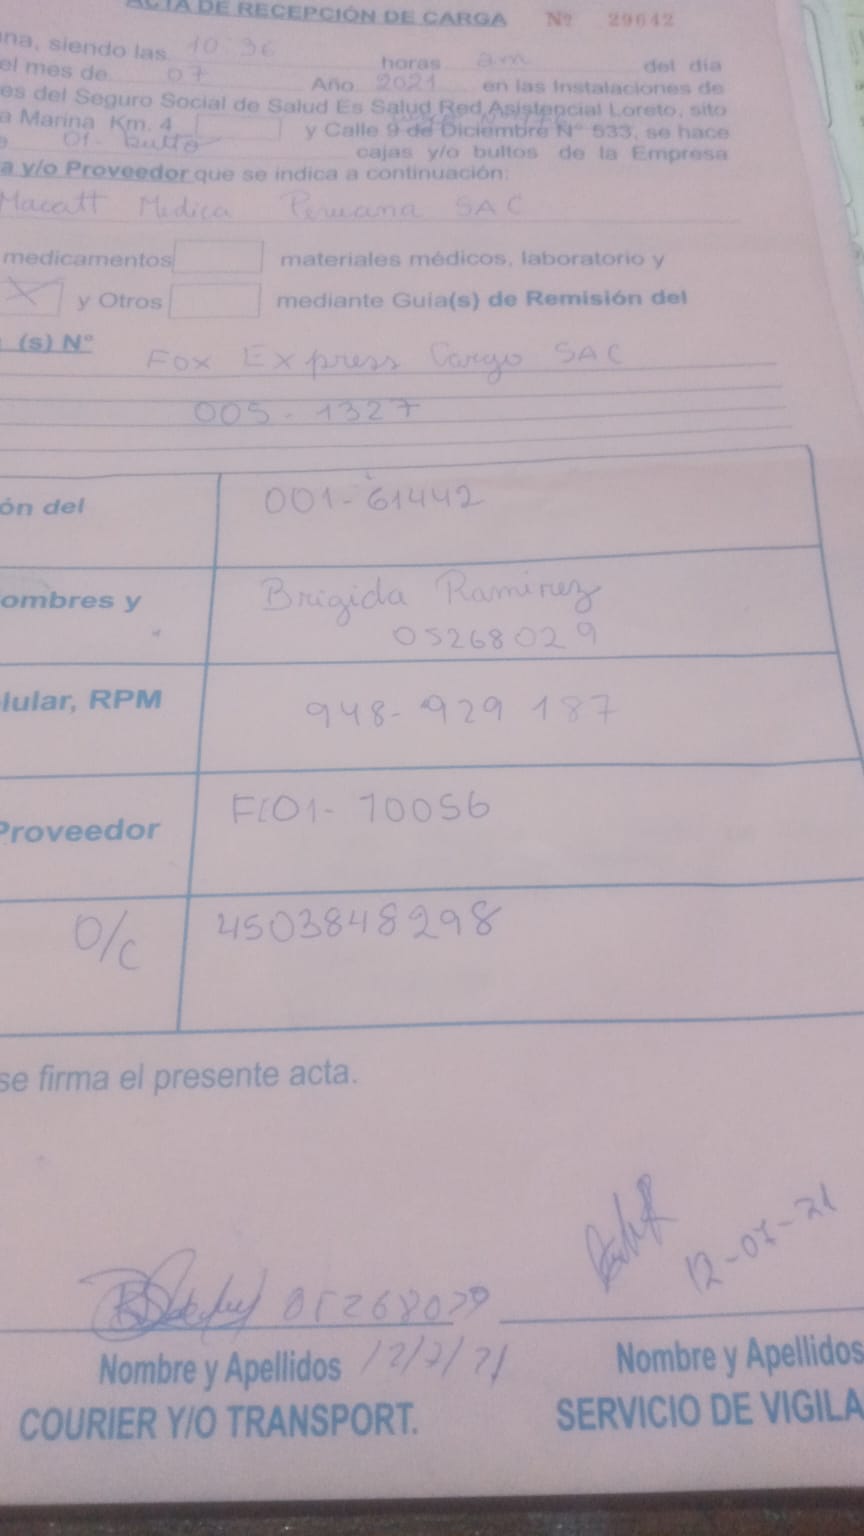 ACTA DE RECEPCIÓN DE CARGA Nº 29642
na, siendo las 10:36 horas am del día
el mes de 07 Año 2021 en las Instalaciones de
es del Seguro Social de Salud Es Salud Red Asistencial Loreto, sito
a Marina Km. 4 y Calle 9 de Diciembre N° 533, se hace
01 - bulto cajas y/o bultos de la Empresa
a y/o Proveedor que se indica a continuación:
Macatt Medica Peruana SAC
medicamentos materiales médicos, laboratorio y
X y Otros mediante Guia(s) de Remisión del
(s) N°
Fox Express Cargo SAC
005 - 1327
ón del 001-61442
ombres y Brigida Ramirez
05268029
lular, RPM 948-929 187
Proveedor F101-70056
O/C 4503848298
se firma el presente acta.
05268029
12-07-21
Nombre y Apellidos 12/7/21
Nombre y Apellidos
COURIER Y/O TRANSPORT.
SERVICIO DE VIGILA